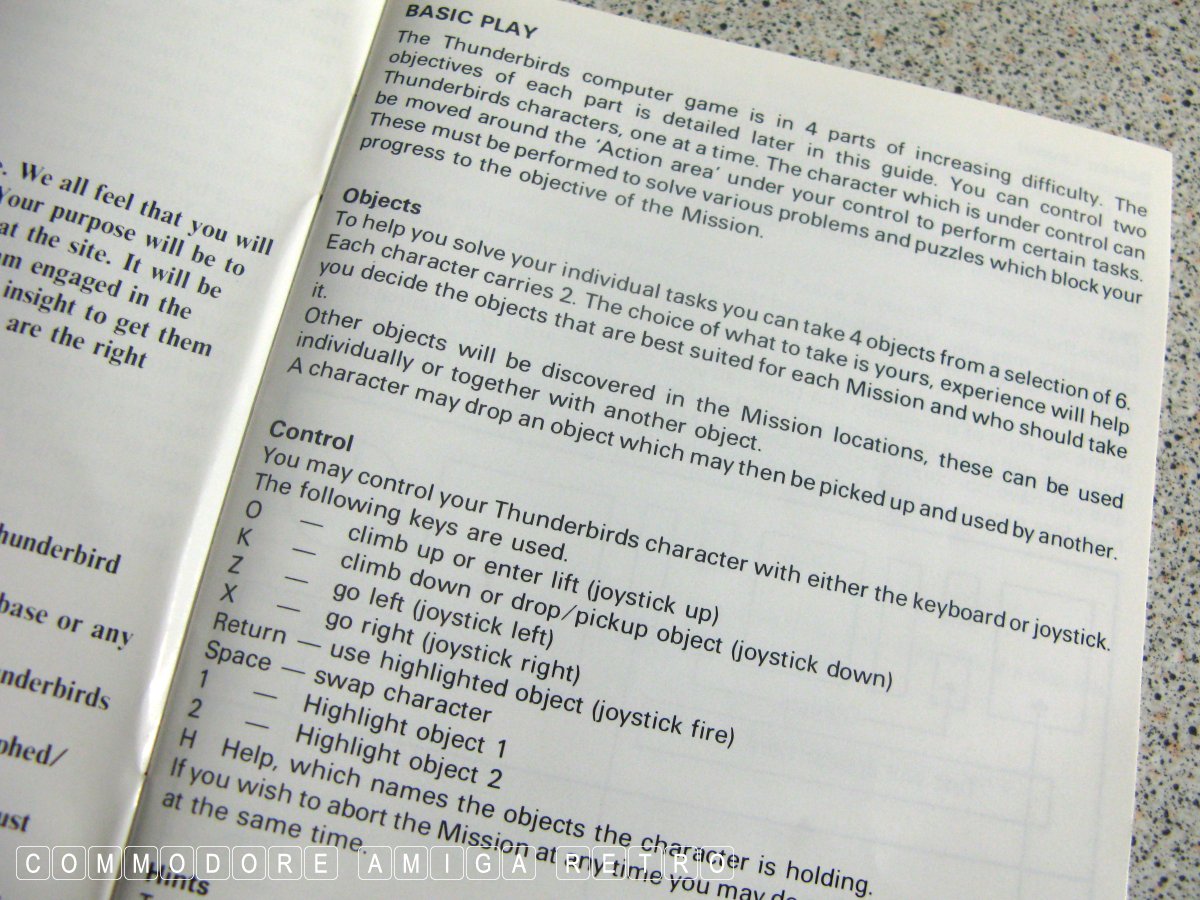 . We all feel that you will
Your purpose will be to
at the site. It will be
engaged in the
insight to get them
are the right
hunderbird
base or any
nderbirds
phed/
ust
BASIC PLAY
The Thunderbirds computer game is in 4 parts of increasing difficulty. The
objectives of each part is detailed later in this guide. You can control two
Thunderbirds characters, one at a time. The character which is under control can
be moved around the 'Action area' under your control to perform certain tasks.
These must be performed to solve various problems and puzzles which block your
progress to the objective of the Mission.
Objects
To help you solve your individual tasks you can take 4 objects from a selection of 6.
Each character carries 2. The choice of what to take is yours, experience will help
you decide the objects that are best suited for each Mission and who should take
it.
Other objects will be discovered in the Mission locations, these can be used
individually or together with another object.
A character may drop an object which may then be picked up and used by another.
Control
You may control your Thunderbirds character with either the keyboard or joystick.
The following keys are used.
O — climb up or enter lift (joystick up)
K — climb down or drop/pickup object (joystick down)
Z — go left (joystick left)
X — go right (joystick right)
Return — use highlighted object (joystick fire)
Space — swap character
1 — Highlight object 1
2 — Highlight object 2
H Help, which names the objects the character is holding.
If you wish to abort the Mission at any time you may do
at the same time.
Hints
COMMODORE AMIGA RETRO